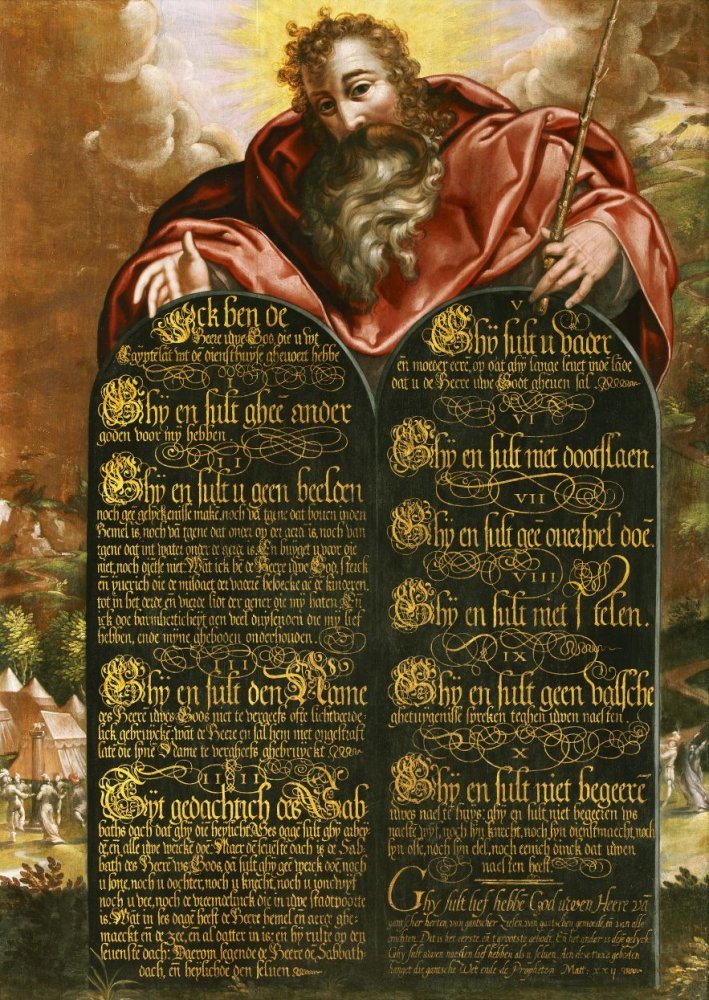 Ick ben de
Heere uwe God, die u wt
Egÿptēlāt wt dē diensthuyse ghevoert hebbe
I
Ghÿ en sult gheē ander
goden voor mÿ hebben.
II
Ghÿ en sult u geen beelden
noch geē gelyckenisse makē, noch vā tgene dat boven inden
Hemel is, noch vā tgene dat onder op der aerdē is, noch van
tgene dat int water onder de aerde is. En buyget u voor die
niet, noch dietse niet: Wāt ick bē de Heere uwe God, sterck
eñ ÿverich die de misdaet der vaderē besoecke aē de kinderen,
tot in het derde en vierde lidt der gener die mÿ haten. En
ick doe barmherticheÿt aen veel duysenden die mÿ lief
hebben, ende mÿne gheboden onderhouden.
III
Ghÿ en sult den Name
des Heerē uwes Gods niet te vergeefs ofte lichtveerde-
lick gebruyckē, wāt de Heere en sal hem niet ongestraft
latē die sÿnē Name te vergheefs ghebruyckt
IIII
Sÿt gedachtich des Sab
baths dach dat ghÿ diē heylicht. Ses dagē sult ghÿ arbey-
dē, eñ alle uwe wercke doē. Maer de sevēste dach is de Sab-
bath des Heerē uws Gods, dā sult ghÿ geē werck doē, noch
u sone, noch u dochter, noch u knecht, noch u joncwyf
noch u vee, noch de vreemdelinck die in uwe stadtpoorte
is. Wāt in ses dagē heeft de Heere hemel en aerde ghe-
maeckt eñ de zee, en al datter in is: en hÿ ruste op den
sevensten dach: Daerom segende de Heere dē Sabbath-
dach, eñ heylichde den selven
V
Ghÿ sult u vader
eñ moeder eerē, op dat ghÿ lange levet indē lāde
dat u de Heere uwe Godt gheven sal.
VI
Ghÿ en sult niet dootslaen.
VII
Ghÿ en sult geē overspel doē.
VIII
Ghÿ en sult niet stelen.
IX
Ghÿ en sult geen valsche
ghetuygenisse spreken teghen uwen naesten
X
Ghÿ en sult niet begeerē
uwes naestē huys: ghÿ en sult niet begeeren uws
naestē wÿf, noch sÿn knecht, noch sÿn dienstmaecht, noch
sÿn osse, noch sÿn esel, noch eenich dinck dat uwen
naesten heeft.
Ghy sult lief hebbē God uwen Heere vā
gantscher herten, van gantscher Zielen, van gantschen gemoede, eñ van alle
crachten. Dit is het eerste, eñ t'grootste gebodt. En het ander is desē gelyck
Ghy sult uwen naesten lief hebben als u selven. Aen dese twee geboden
hanget die gantsche Wet ende de Propheten Matt: xxij